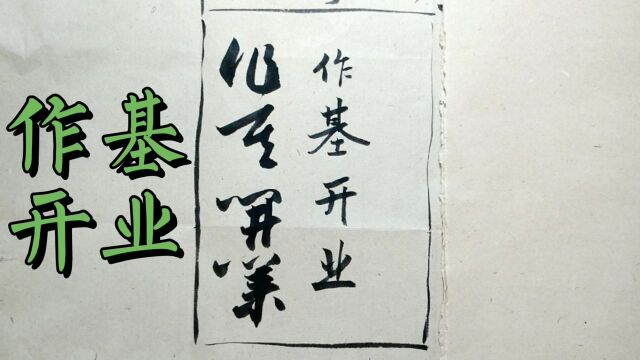 作基
开业
作基开业
作基開業